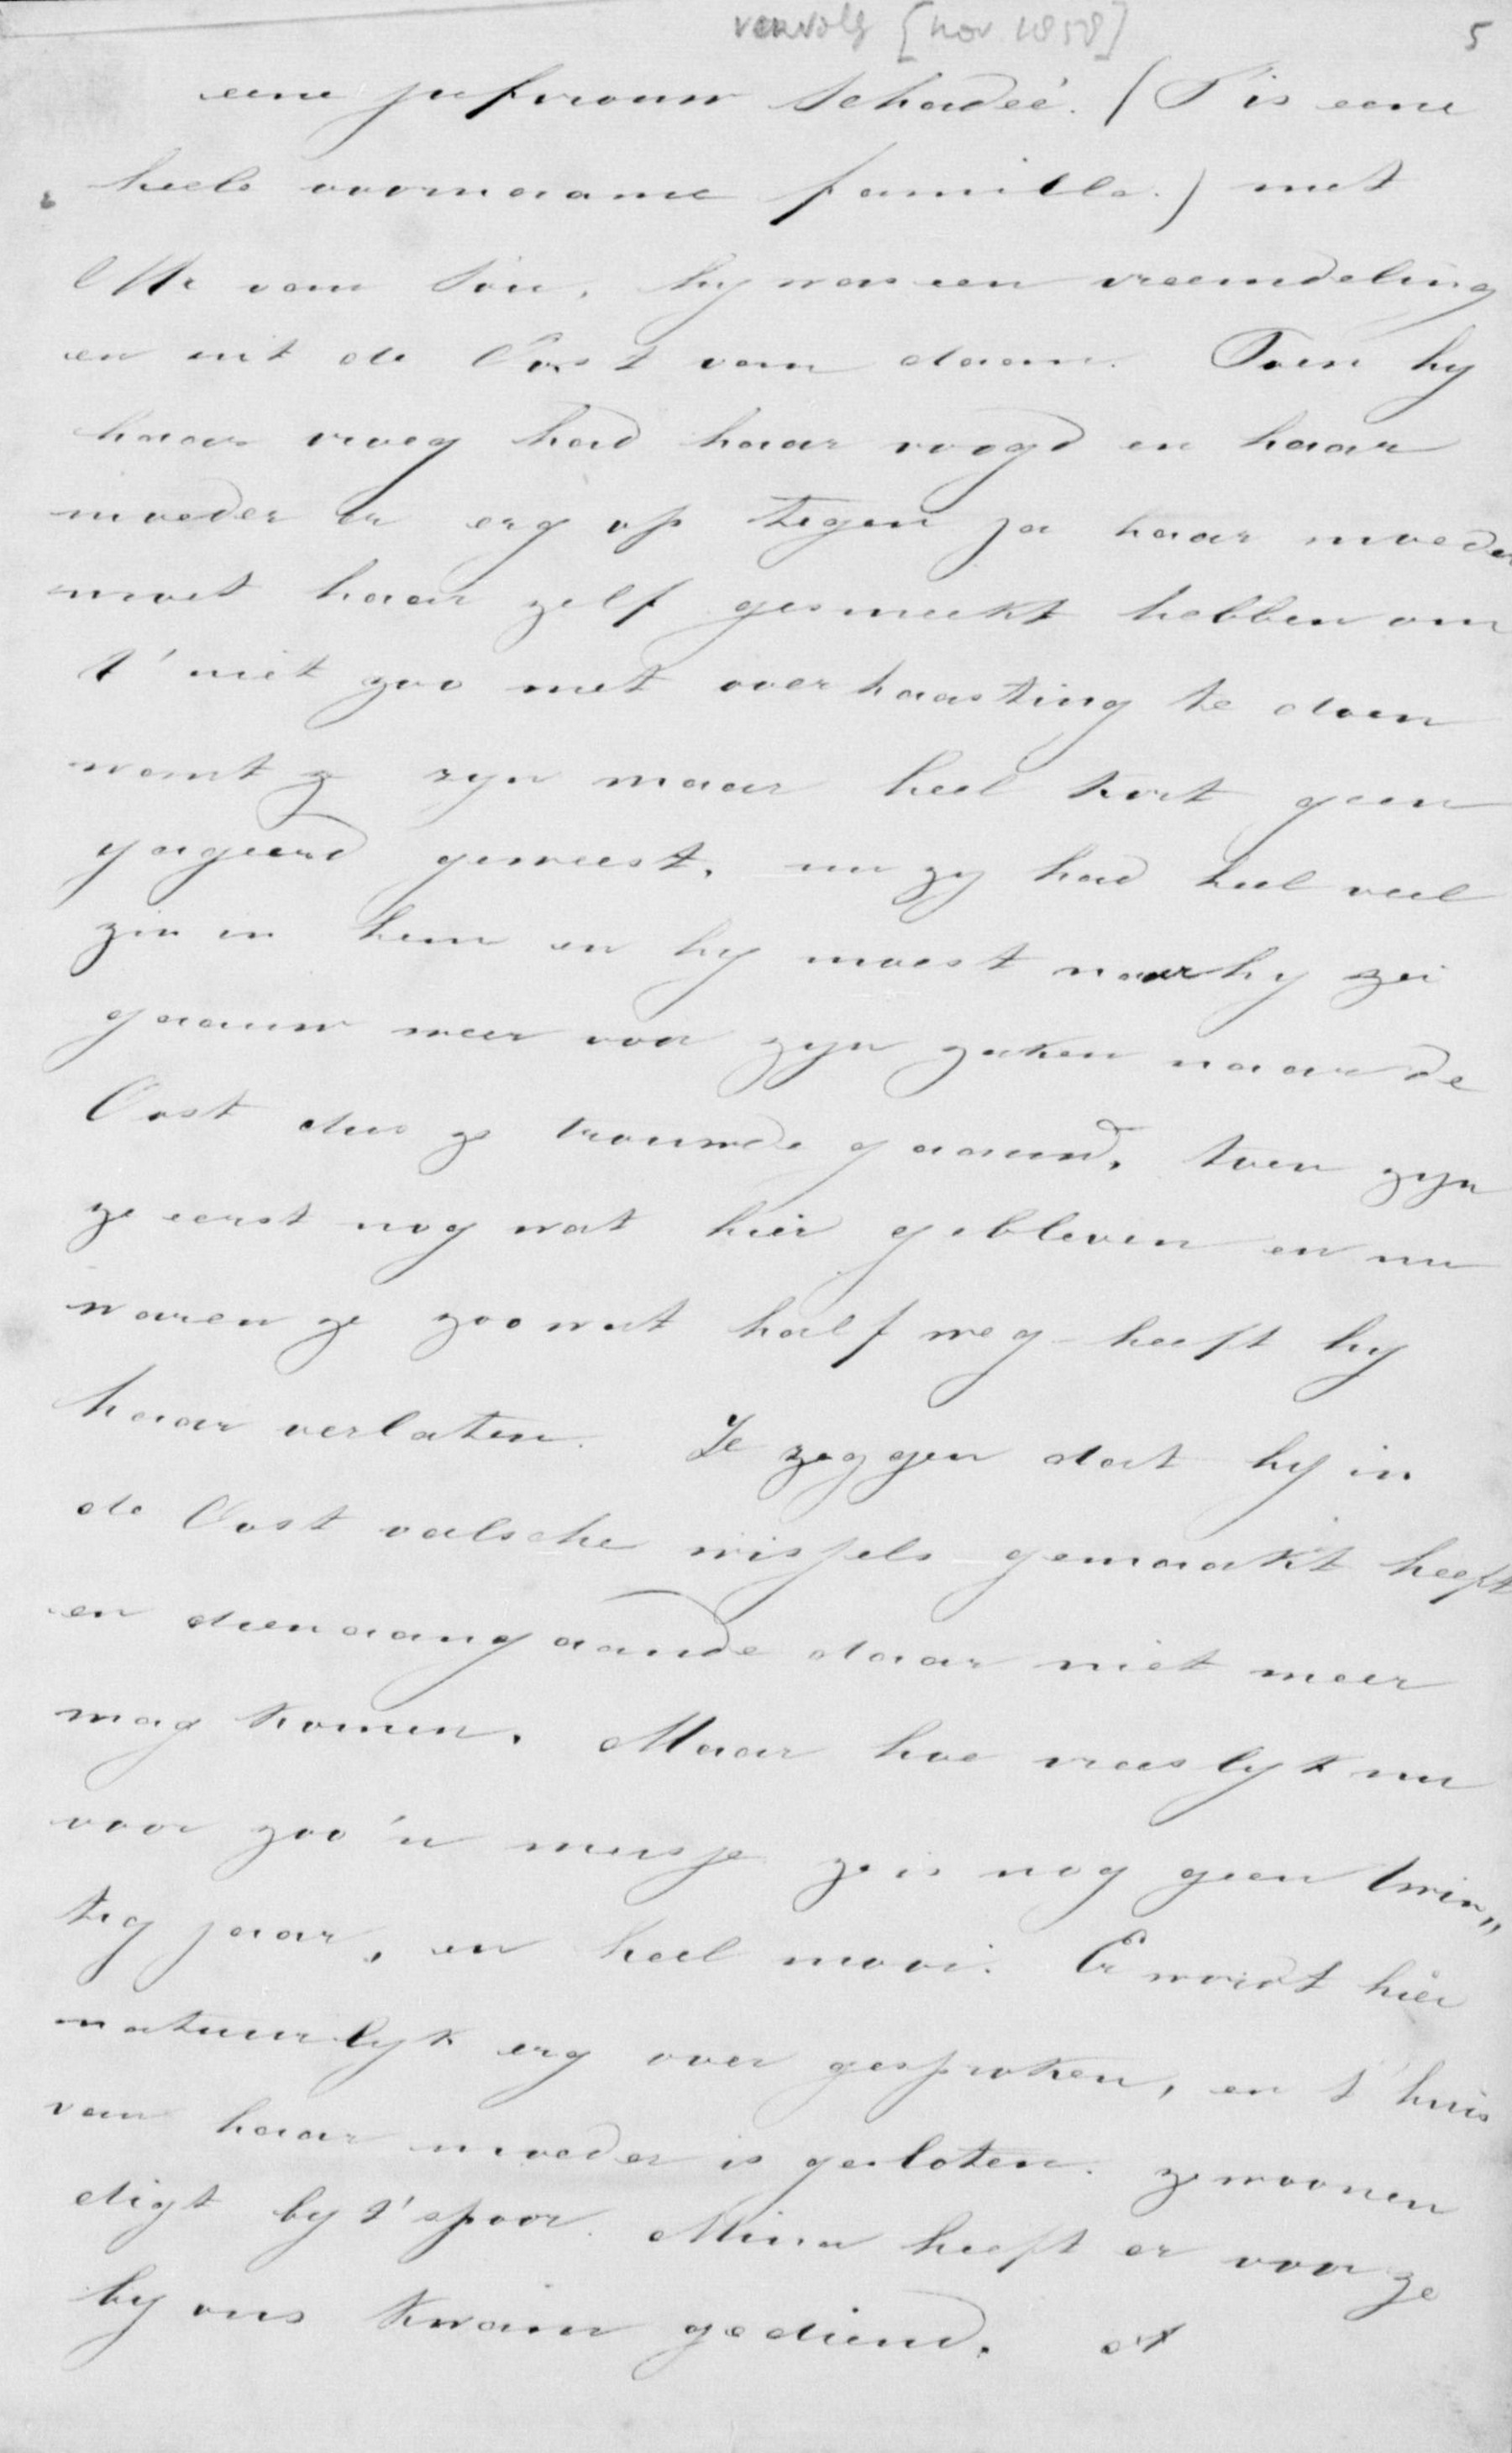 vervolg [nov 1858]
5
eene jufvrouw Schadeé. (T is eene
heele voornaame famille.) met
Mr van Son, hy was een vreemdeling
en uit de Oost van daan. Toen hy
haar vroeg had haar voogd en haar
moeder er erg op tegen ja haar moeder
moet haar zelf gesmeekt hebben om
t' niet zoo met overhaasting te doen
want z zyn maar heel kort geen
gageerd geweest, nu zy had heel veel
zin in hem en hy moest naar hy zei
gaauw weer voor zyn zaken naar de
Oost dus ze trouwde gaauw, toen zyn
ze eerst nog wat hier gebleven en nu
waren ze zoo wat half weg heeft hy
haar verlaten. Ze zeggen dat hy in
de Oost valsche wissels gemaakt heeft
en dienaangaande daar niet meer
mag komen. Maar hoe vreeslyk nu
voor zoo'n meisje ze is nog geen twin„
tig jaar, en heel mooi. Er wordt hier
natuurlyk erg over gesproken, en t' huis
van haar moeder is gesloten. ze woonen
digt by t' spoor. Mina heeft er voor ze
by ons kwam gediend.